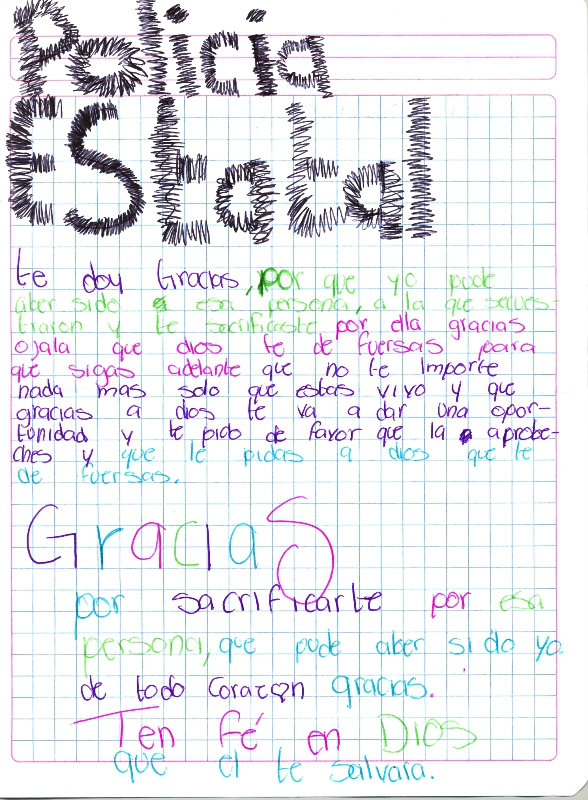 Policia
EStatal
te doy Gracias, por que yo pude
aber side esa persona, a la que secues-
traron y te sacrificaste por ella gracias
ojala que dios te de fuersas para
que sigas adelante que no te importe
nada mas solo que estas vivo y que
gracias a dios te va a dar una opor-
tunidad y te pido de favor que la aprobe-
ches y que le pidas a dios que te
de fuersas.
GraciaS
por sacrificarte por esa
persona, que pude aber sido yo
de todo corazon gracias.
Ten fé en DioS
que el te salvara.